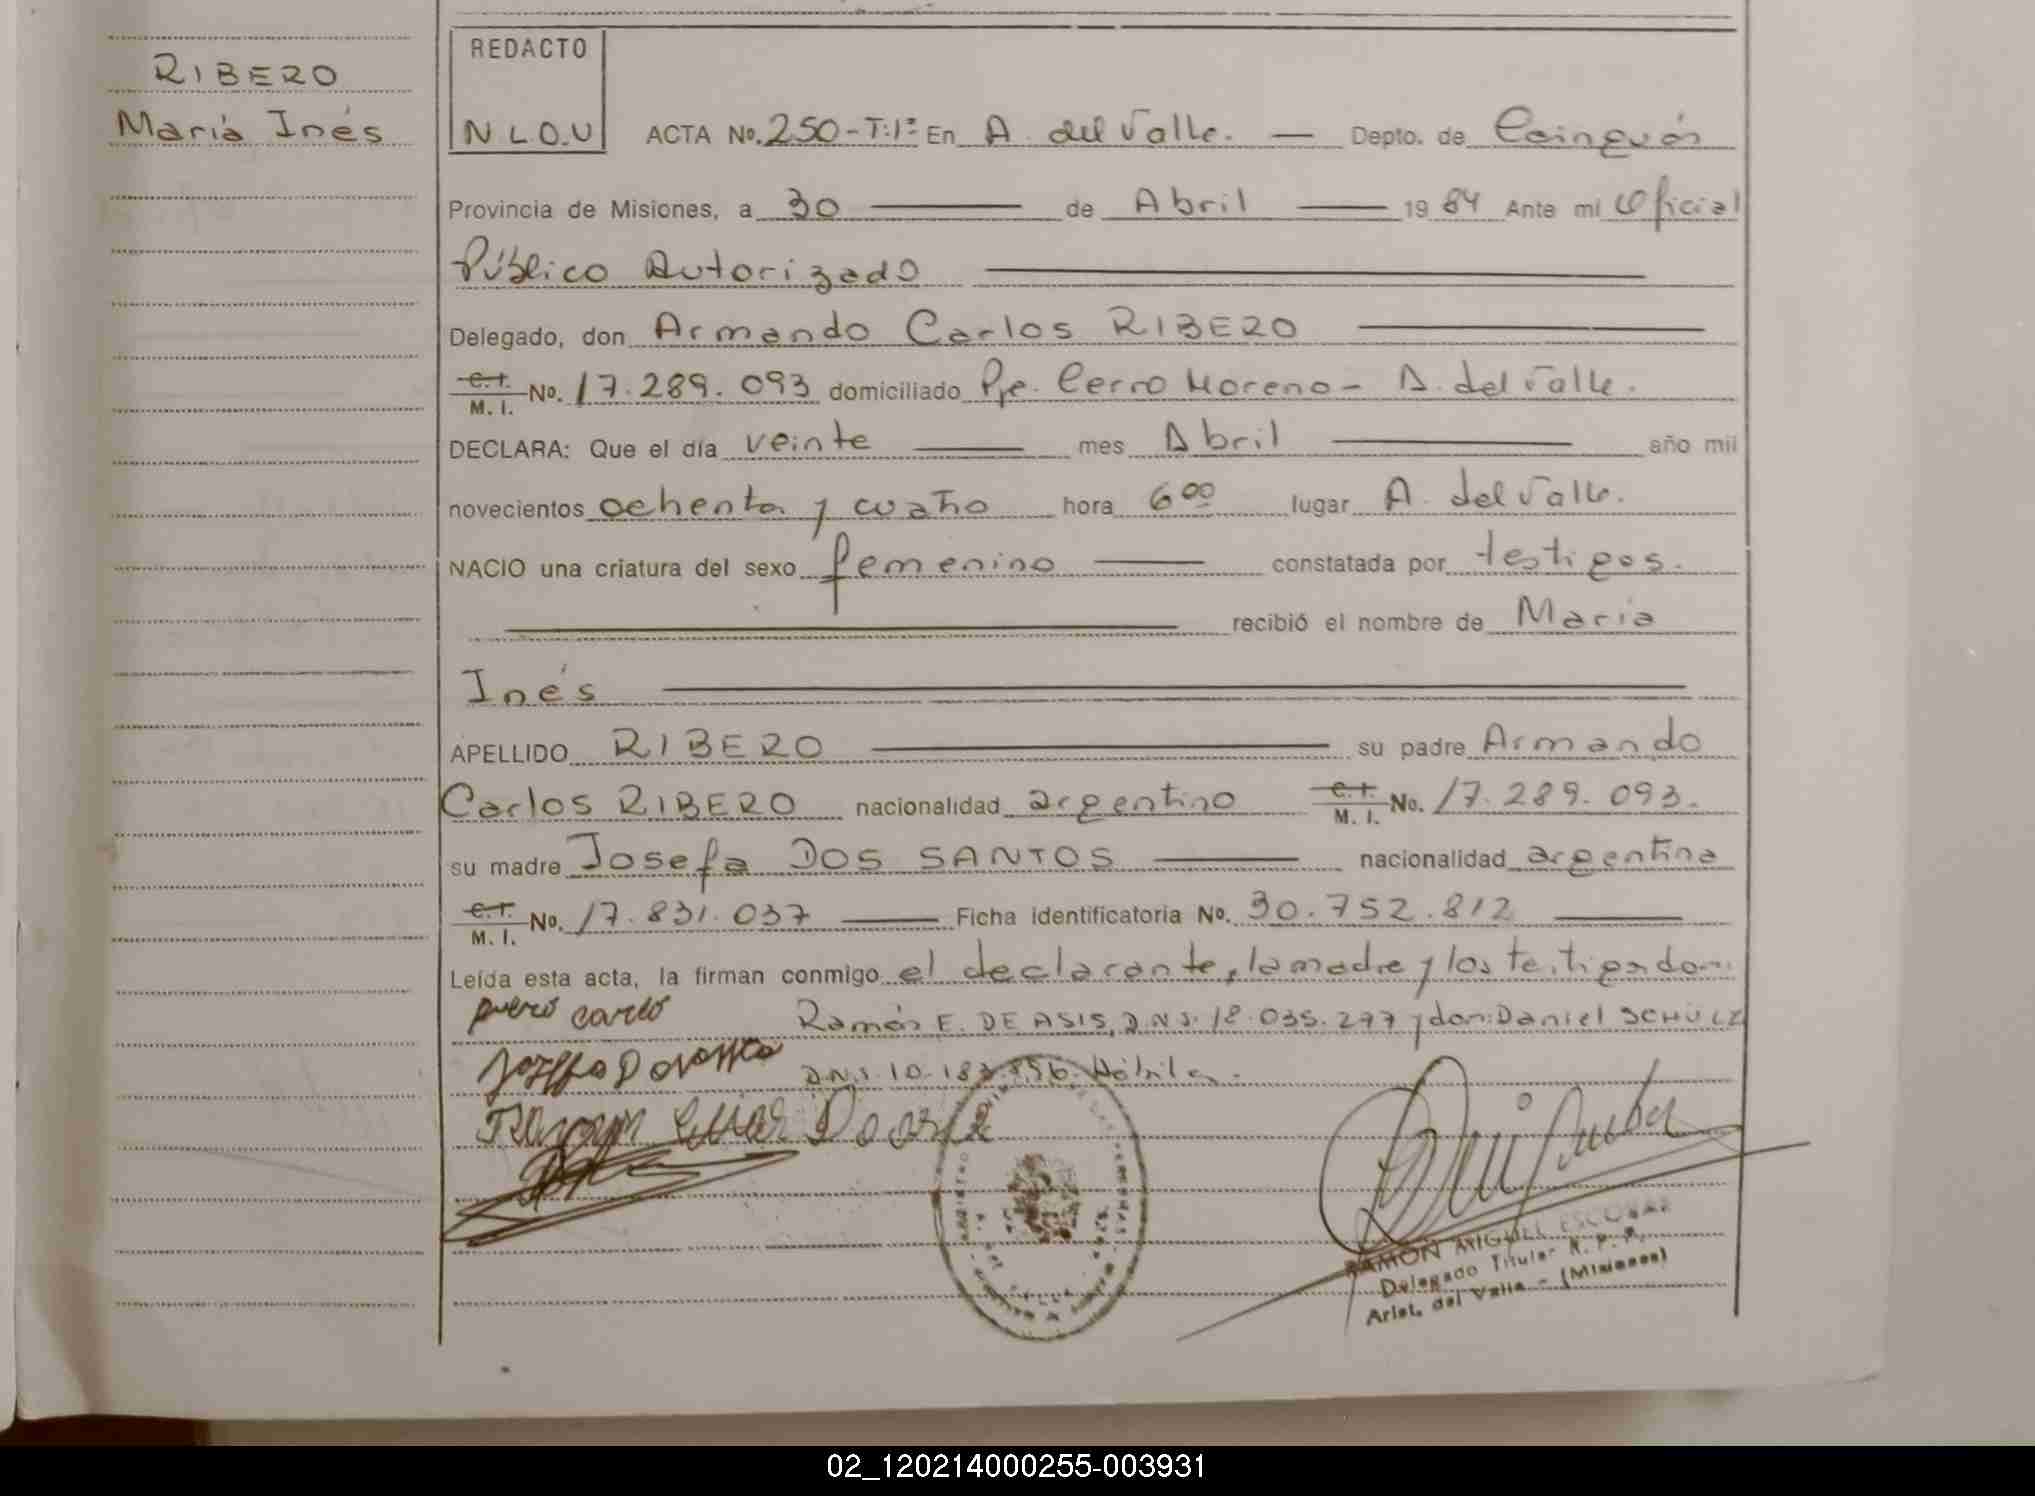 RIBERO
María Inés
REDACTO
N L.O.U
ACTA No. 250-T:1º En A. del Valle. — Depto. de Cainguás
Provincia de Misiones, a 30 — de Abril — 19 84 Ante mi Oficial
Público Autorizado —
Delegado, don Armando Carlos RIBERO —
C.I. M. I. No. 17.289.093 domiciliado Pje. Cerro Moreno - A. del Valle.
DECLARA: Que el día veinte — mes Abril — año mil
novecientos ochenta y cuatro hora 6 00 lugar A. del Valle.
NACIO una criatura del sexo femenino — constatada por testigos.
— recibió el nombre de María
Inés —
APELLIDO RIBERO — su padre Armando
Carlos RIBERO nacionalidad argentino C.I. M. I. No. 17.289.093.
su madre Josefa DOS SANTOS — nacionalidad argentina
C.I. M. I. No. 17.831.037 — Ficha identificatoria No. 30.752.812 —
Leída esta acta, la firman conmigo el declarante, la madre y los testigos don:
Ramón E. DE ASIS, D.N.I. 18.035.277 y don: Daniel SCHULZ
D.N.I. 10. Hábiles.
RAMON MIGUEL ESCOBAR
Delegado Titular R. P. P.
Arist. del Valle - (Misiones)
02_120214000255-003931